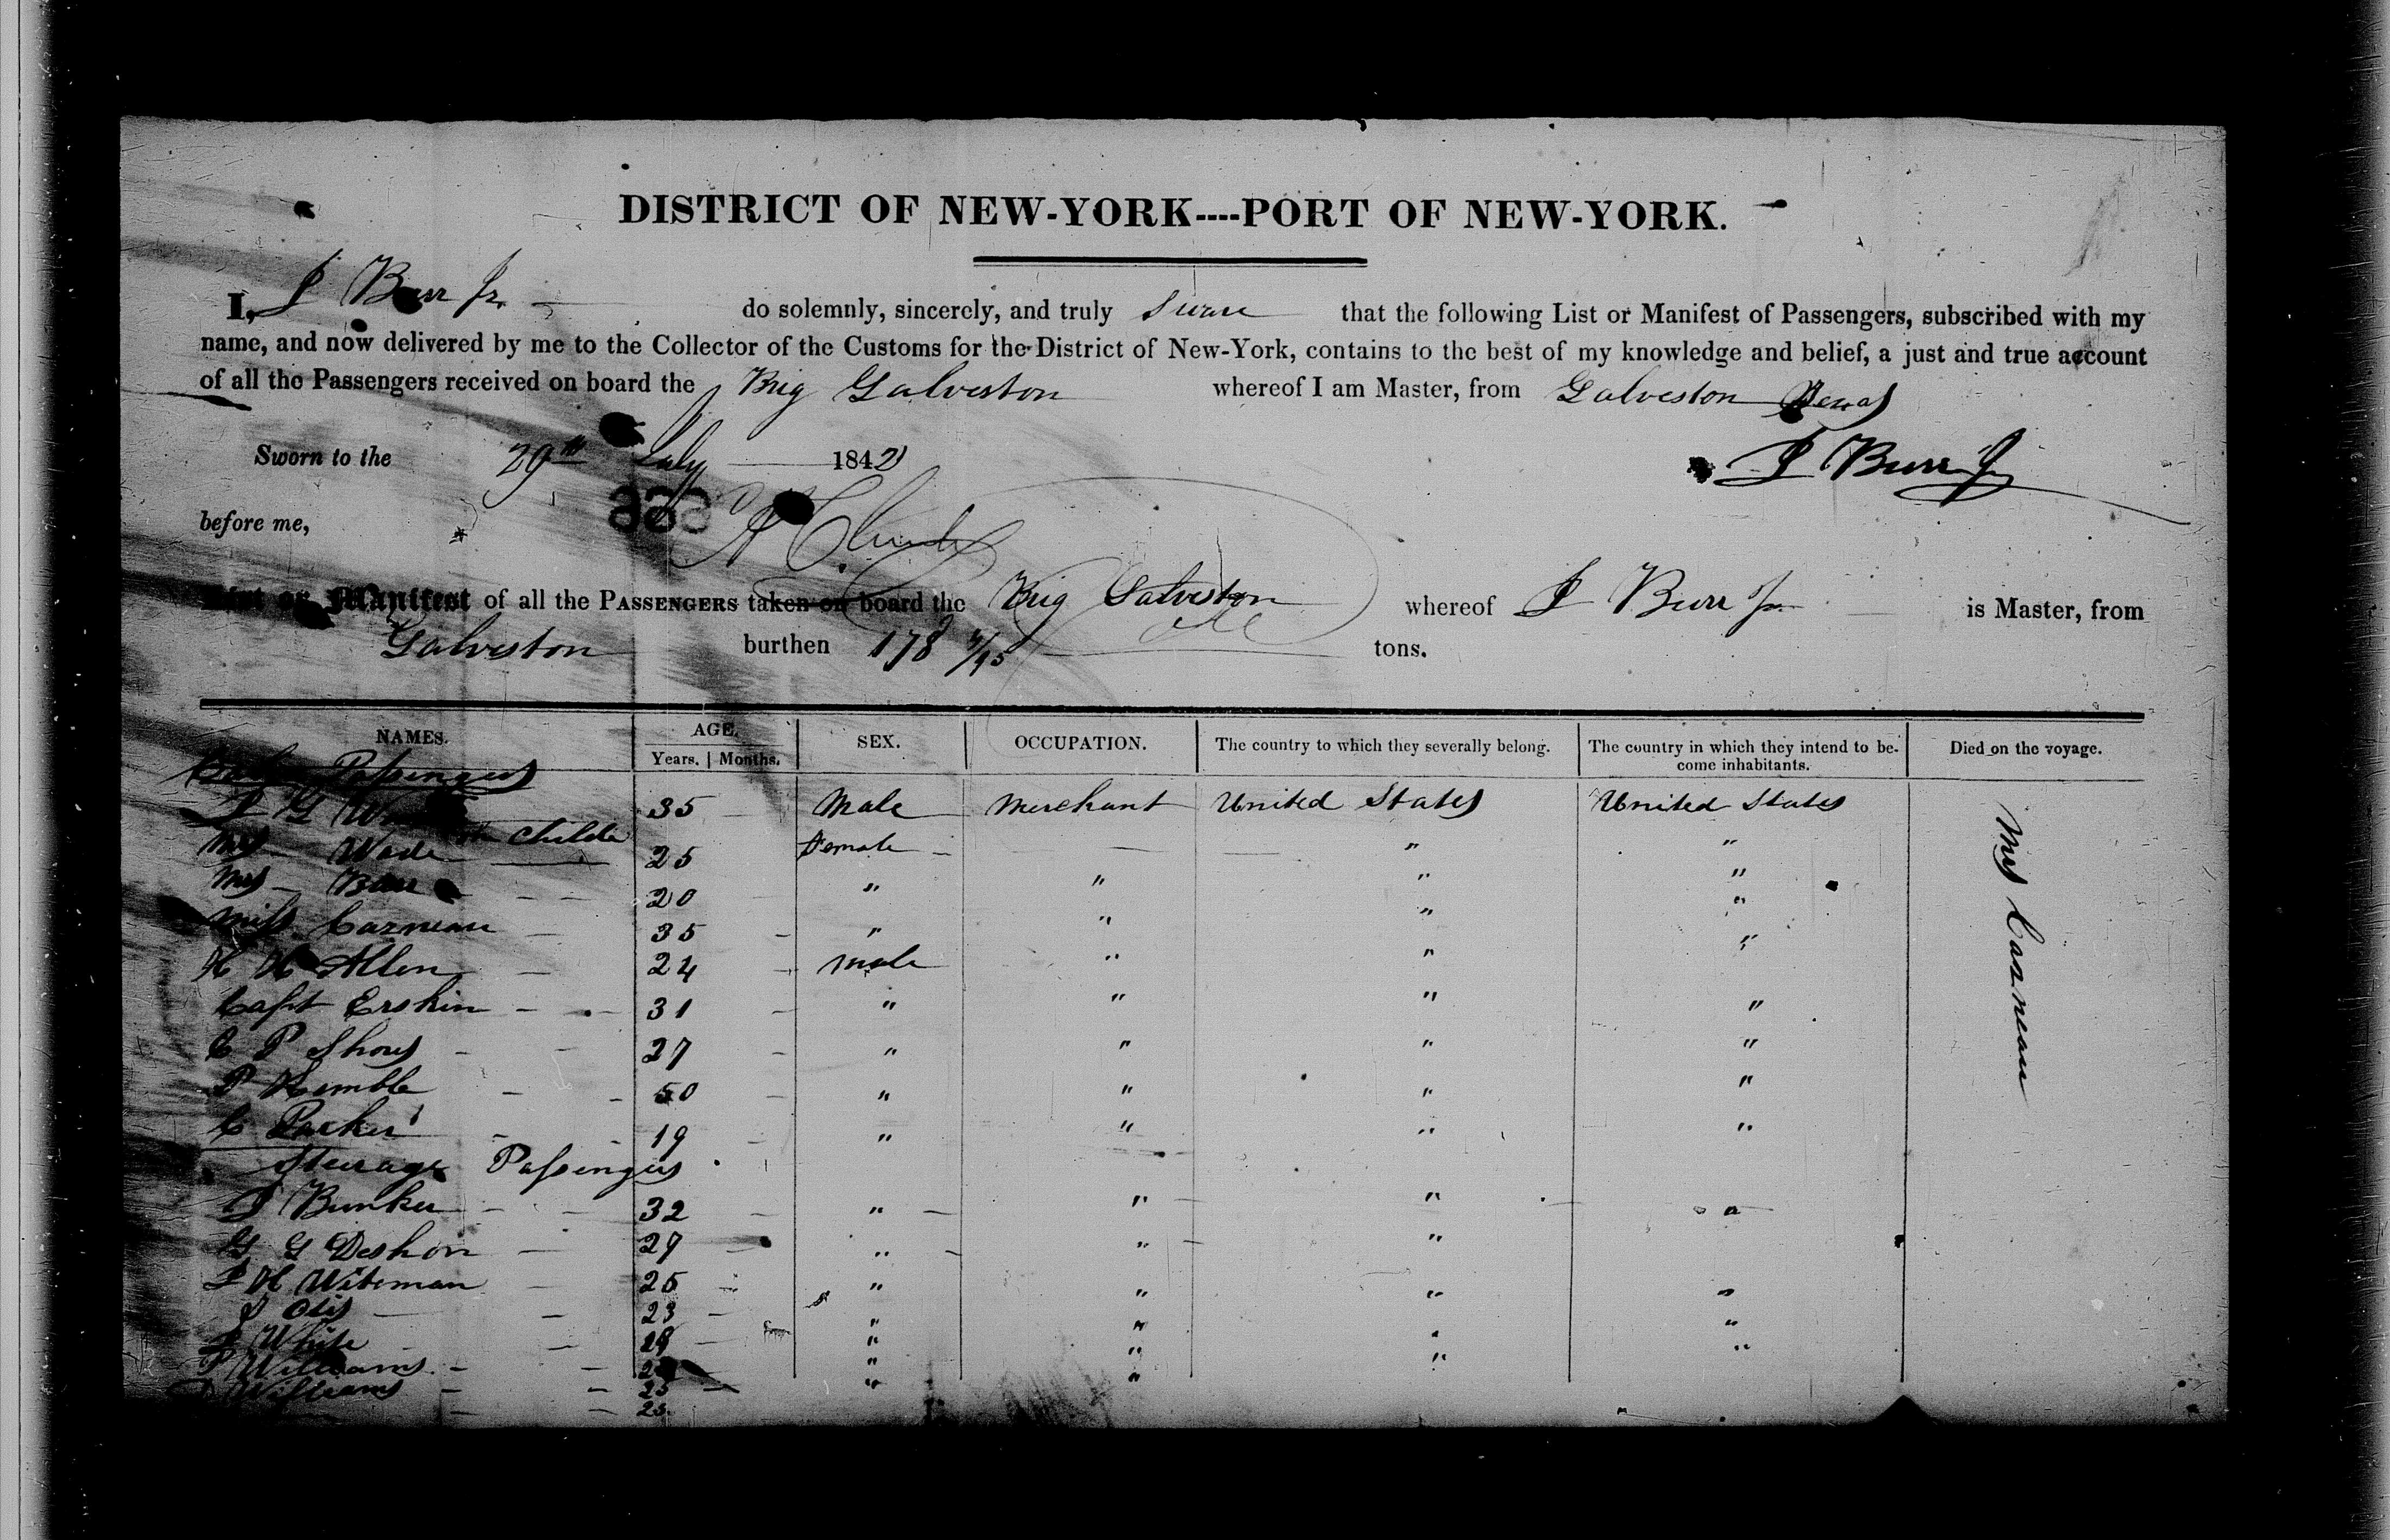 DISTRICT OF NEW-YORK----PORT OF NEW-YORK.
I, J Burr Jr. do solemnly, sincerely, and truly swear that the following List or Manifest of Passengers, subscribed with my
name, and now delivered by me to the Collector of the Customs for the District of New-York, contains to the best of my knowledge and belief, a just and true account
of all the Passengers received on board the Brig Galveston whereof I am Master, from Galveston Texas
Sworn to the 29th July 1842
J Burr Jr
before me,
List or Manifest of all the PASSENGERS taken on board the Brig Galveston whereof J Burr Jr. is Master, from
Galveston burthen 178 tons.
NAMES. AGE. SEX. OCCUPATION. The country to which they severally belong. The country in which they intend to be- Died on the voyage.
Years. Months. come inhabitants.
Cabin Passengers
35 Male Merchant United States United States
Mrs Wade Childe 25 Female — " "
Mrs Burr 20 " " " "
Miss Cazneau 35 " " " "
H H Allen 24 Male " " "
Capt Erskin 31 " " " "
C P Shows 27 " " " "
P Kemble 50 " " " "
C Parker 19 " " " "
Steerage Passengers
J Bunker 32 " " " "
G G Deshon 27 " " "
J H Witeman 25 " " " "
J Otis 23 " " "
White 28 " " " "
P Williams " " "
Williams 25 " "
Mrs Cazneau